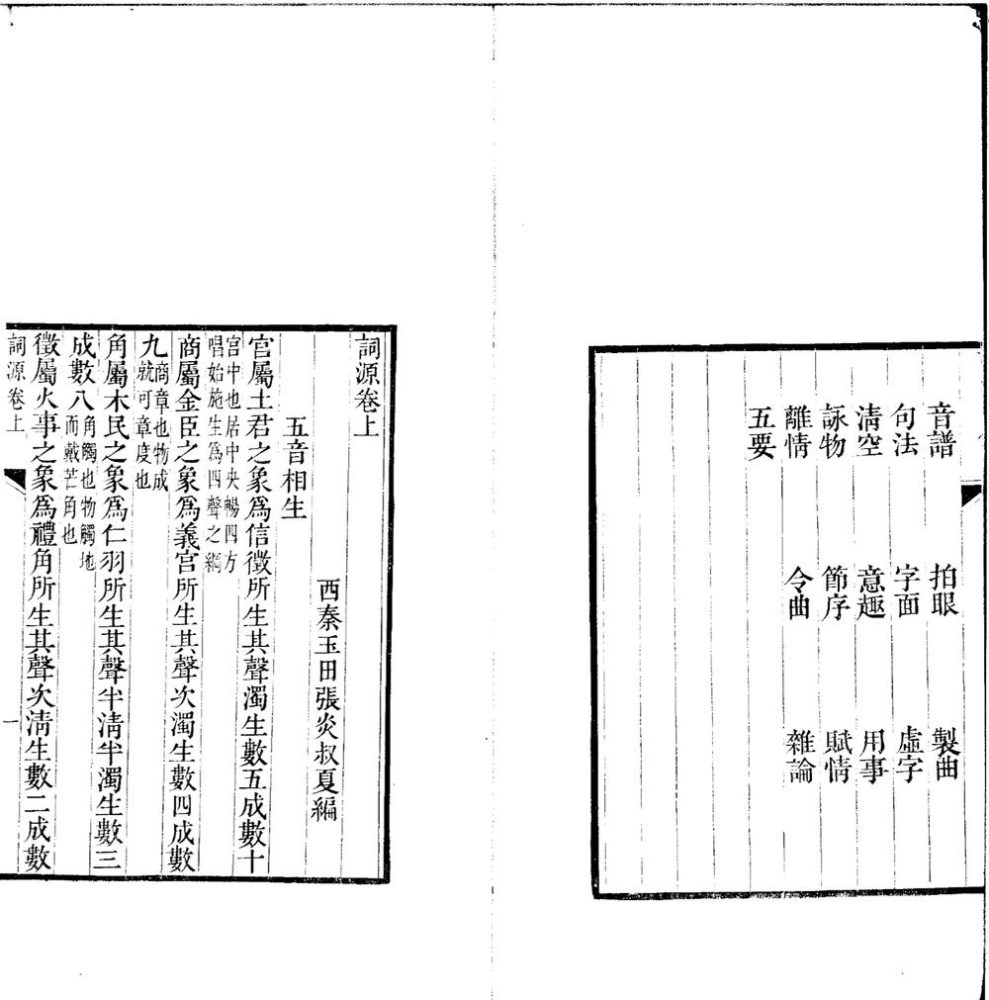 音譜 拍眼 製曲
句法 字面 虛字
淸空 意趣 用事
詠物 節序 賦情
離情 令曲 雜論
五要
詞源卷上
西秦玉田張炎叔夏編
五音相生
宮屬土君之象爲信徵所生其聲濁生數五成數十
宮中也居中央暢四方
唱始施生爲四聲之綱
商屬金臣之象爲義宮所生其聲次濁生數四成數
九
商章也物成
就可章度也
角屬木民之象爲仁羽所生其聲半淸半濁生數三
成數八
角觸也物觸地
而戴芒角也
徵屬火事之象爲禮角所生其聲次淸生數二成數
詞源卷上 一